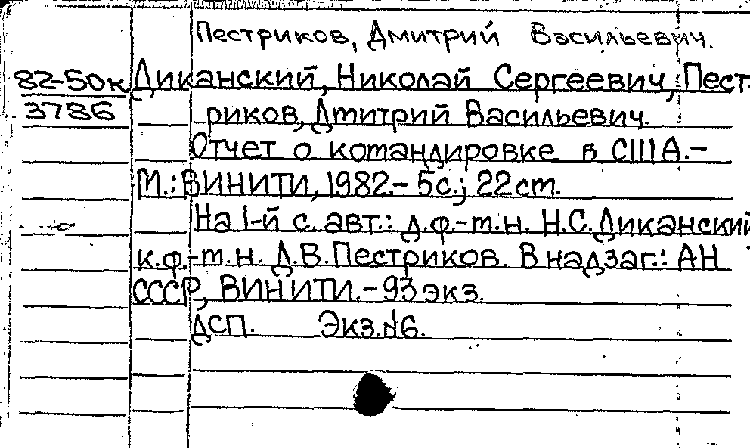 Пестриков, Дмитрий Васильевич.
82-50к Диканский, Николай Сергеевич, Пест-
3786 риков, Дмитрий Васильевич.
Отчет о командировке в США.-
М.: ВИНИТИ, 1982.- 5с.; 22 cm.
На 1-й с. авт.: д.ф.-т.н. Н.С. Диканский
к.ф.-т.н. Д.В. Пестриков. В надзаг.: АН
СССР, ВИНИТИ.- 93 экз.
ДСП. Экз.№6.